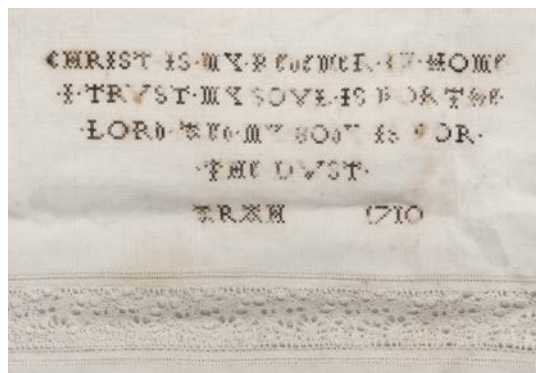 CHRIST·IS·MY·REDEMER·IN·HOME
·I·TRVST·MY·SOVL·IS·FOR·THE
·LORD·AND·MY·BODY·IS·FOR·
·THE·DVST·
1710